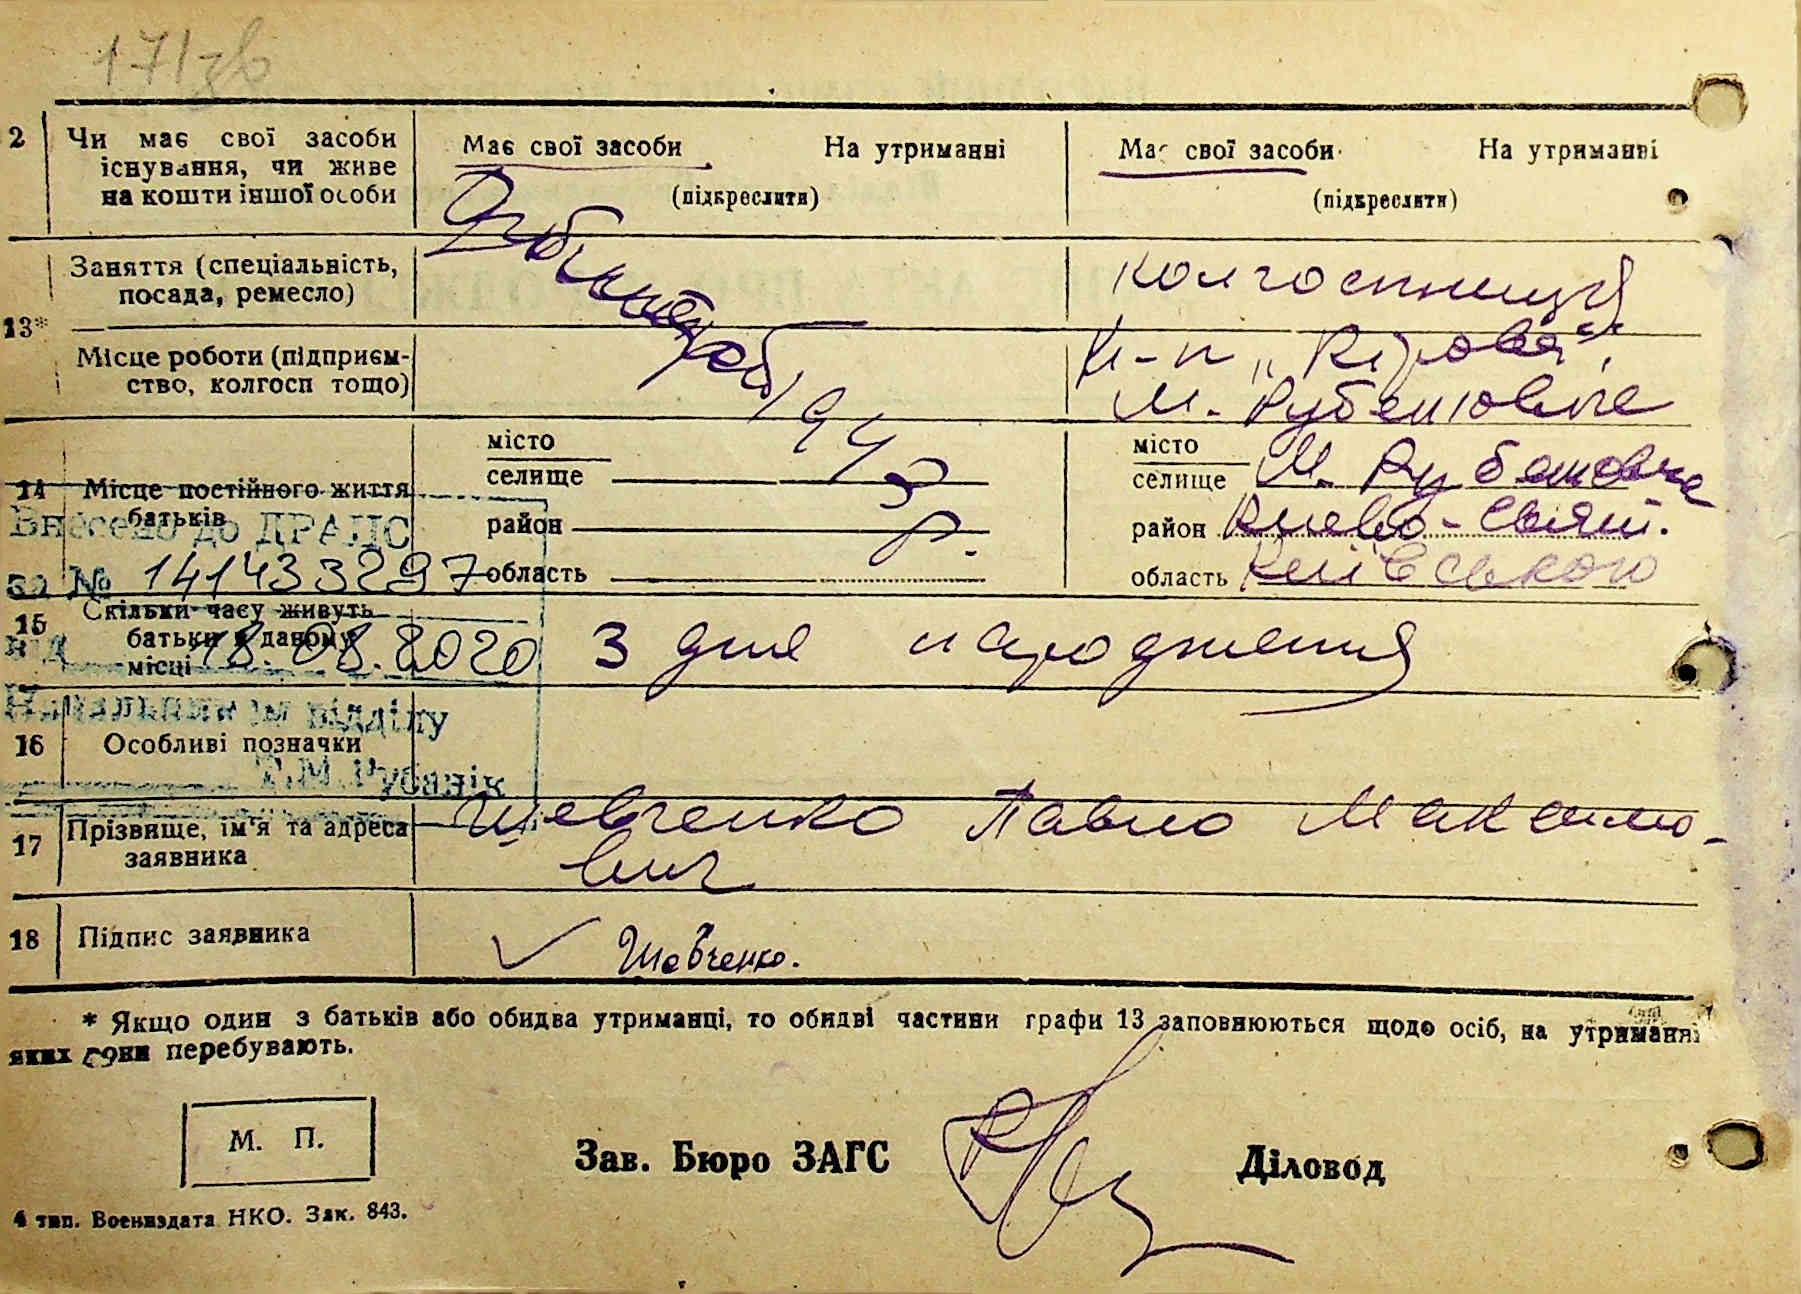 2 Чи має свої засоби існування, чи живе на кошти іншої особи
Має свої засоби На утриманні
(підкреслити)
Має свої засоби На утриманні
(підкреслити)
13* Заняття (спеціальність, посада, ремесло)
колгоспниця
Місце роботи (підприємство, колгосп тощо)
к-п „Кірова",
м. Рубежовка
194
р.
14 Місце постійного життя батьків
місто
селище
район
область
місто
селище
район Києво-Свят.
область Київською
Внесено до ДРАЦС
за № 1414433297
від 18.08.2020
Начальником відділу
Т.М.Рубанік
15 Скільки часу живуть батьки в даному місці
З дня народження
16 Особливі позначки
17 Прізвище, ім'я та адреса заявника
Шевченко Павло Максимо-
вич
18 Підпис заявника
Шевченко.
* Якщо один з батьків або обидва утриманці, то обидві частини графи 13 заповнюються щодо осіб, на утриманні
яких вони перебувають.
М. П.
Зав. Бюро ЗАГС
Діловод
4 тип. Воениздата НКО. Зак. 843.